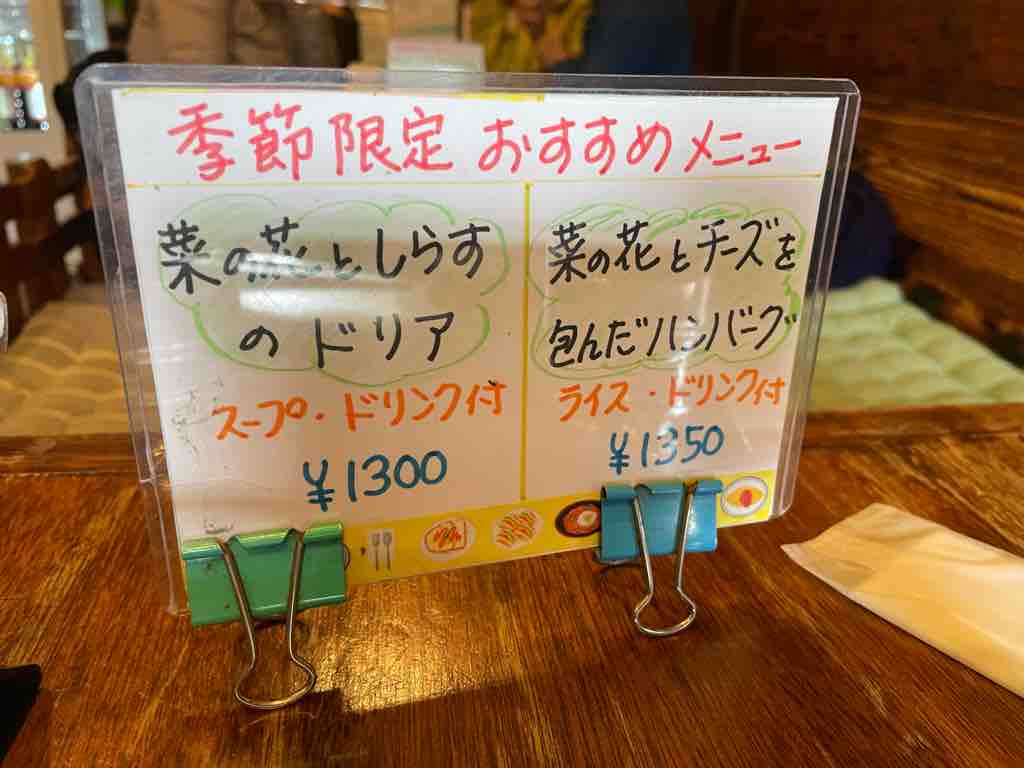 季節限定 おすすめメニュー
菜の花としらす
のドリア
スープ・ドリンク付
¥1300
菜の花とチーズを
包んだハンバーグ
ライス・ドリンク付
¥1350